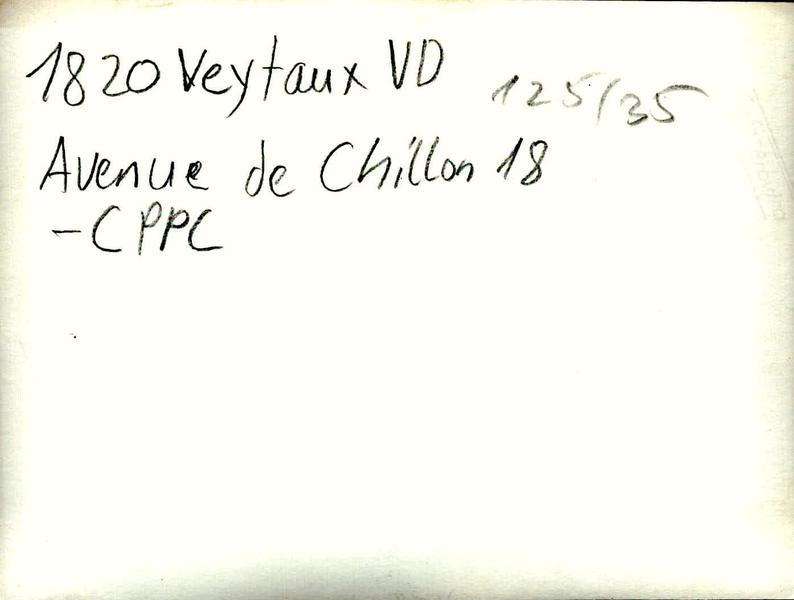 1820 Veytaux VD 125/35
Avenue de Chillon 18
- CPPC